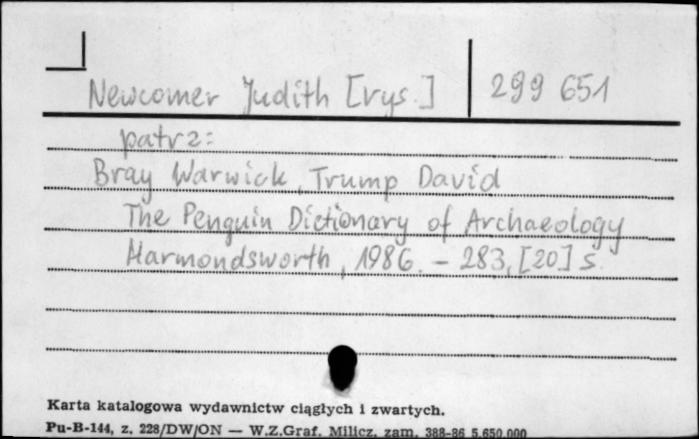 Newcomer Judith [rys.] 299 651
patrz:
Bray Warwick, Trump David
The Penguin Dictionary of Archaeology
Harmondsworth, 1986. - 283, [20] s.
Karta katalogowa wydawnictw ciągłych i zwartych.
Pu-B-144, z. 228/DW/ON — W.Z.Graf. Milicz, zam. 388-86 5.650.000